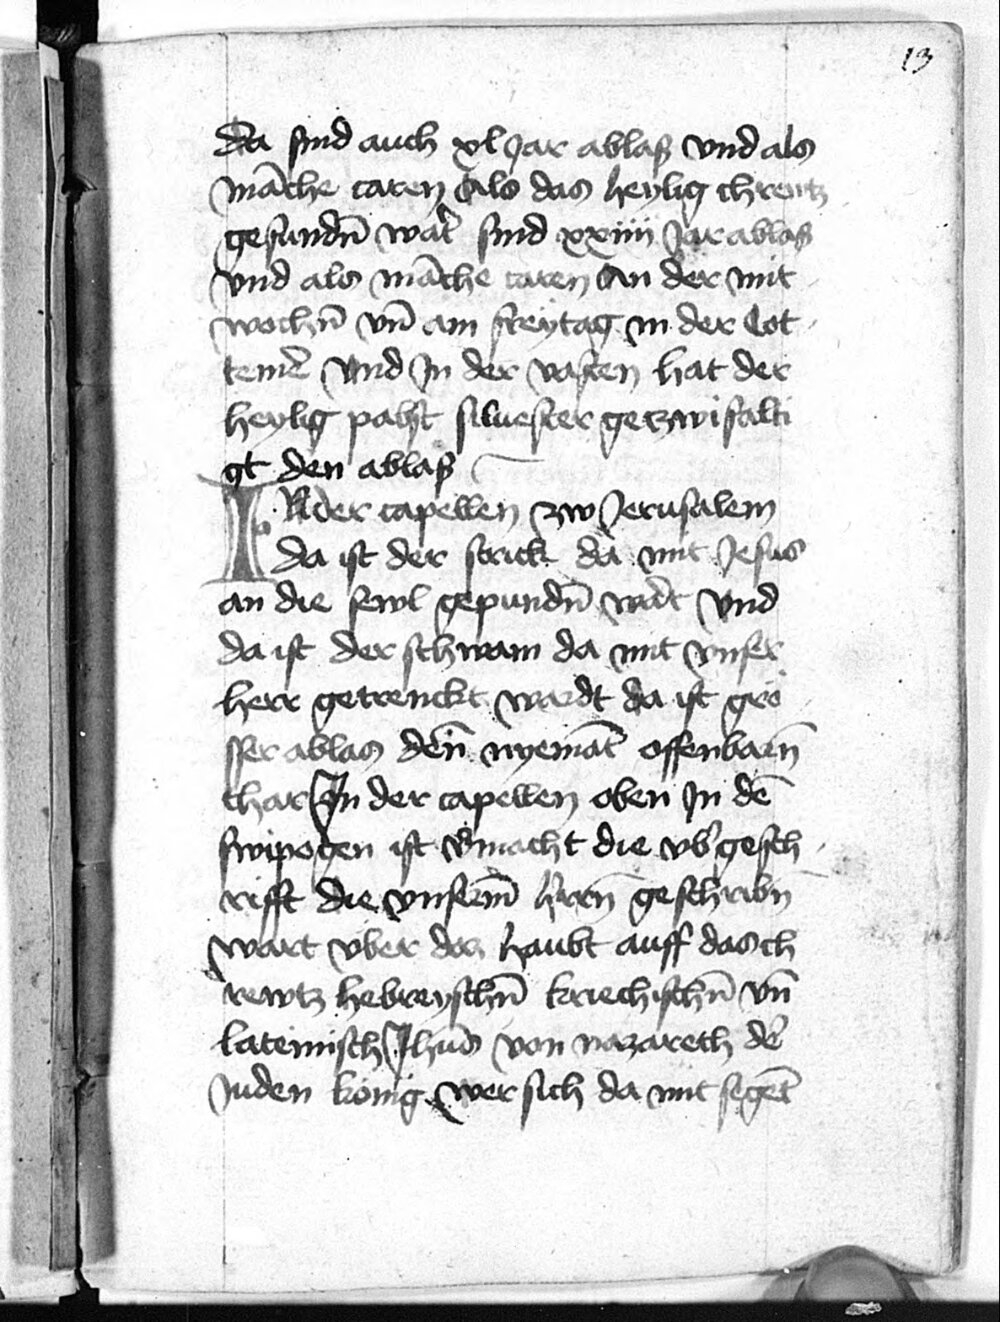 13
da sind auch xl Jar ablaß vnd als
māche caren Als das heylig chreutz
gefundn̄ wār sind xxiiii Jar ablas
vnd als māche caren An der mit
wochn̄ vn̄ am freytag in der Cot
temer̄ Vnd In der vasten hat der
heylig pabst siluester getzwifalti
gt den ablaß
IN der capellen zw Jerusalem
da ist der strick da mit Jesus
an die sewl gepundn̄ wardt Vnd
da ist der schwam da mit vnser
herr getrenckt wardt da ist grö
sser ablas den̄ nyemāt offenbarn̄
thar In der capellen oben In dē
swipogen ist vermacht die vb'gesch
rifft die vnserm̄ hern̄ geschribn̄
wart vber das haubt auff das ch
rewtz hebreyschn̄ kriechischn̄ vn̄
lateinisch Jhūs von nazareth der̄
Juden konig wer sich da mit segēt